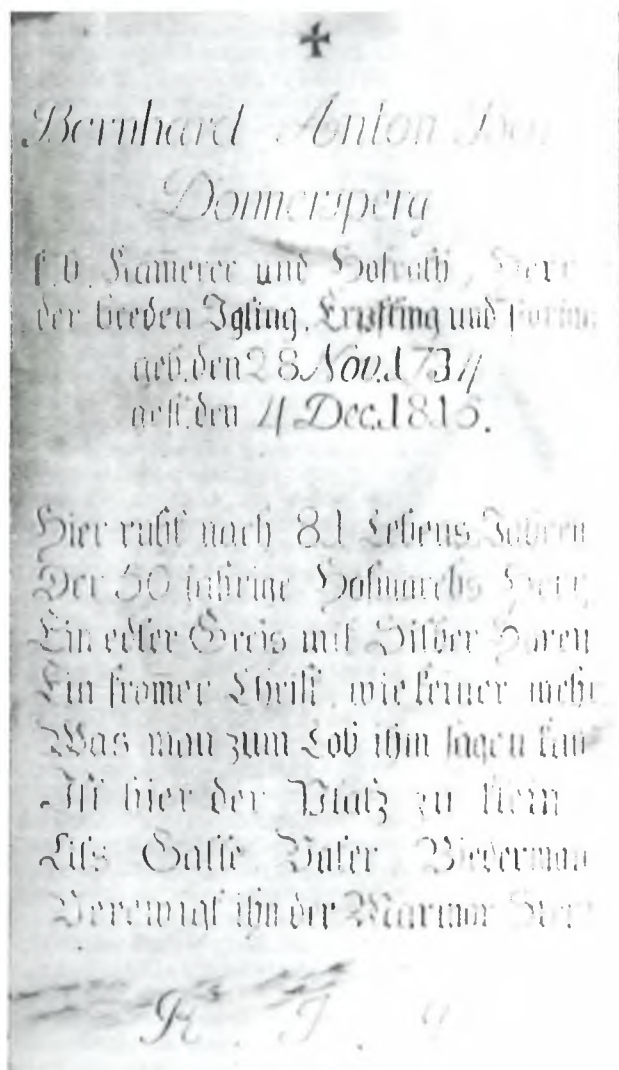 ✠
Bernhard Anton Von
Donnersperg
k. b. Kamerer und Hofrath, Herr
der beeden Igling, Erpfting und
geb. den 28 Nov. 1734
gest. den 4 Dec. 1815.
Hier ruht nach 81 Lebens Jahren
Der 50 jährige Hofmarchs Herr,
Ein edler Greis mit Silber Haren
Ein fromer Christ, wie keiner mehr
Was man zum Lob ihm sagen kan
Ist hier der Platz zu klein
Als Gatte, Vater, Biederman
Verewigt ihn der Marmor Stein
R. I.